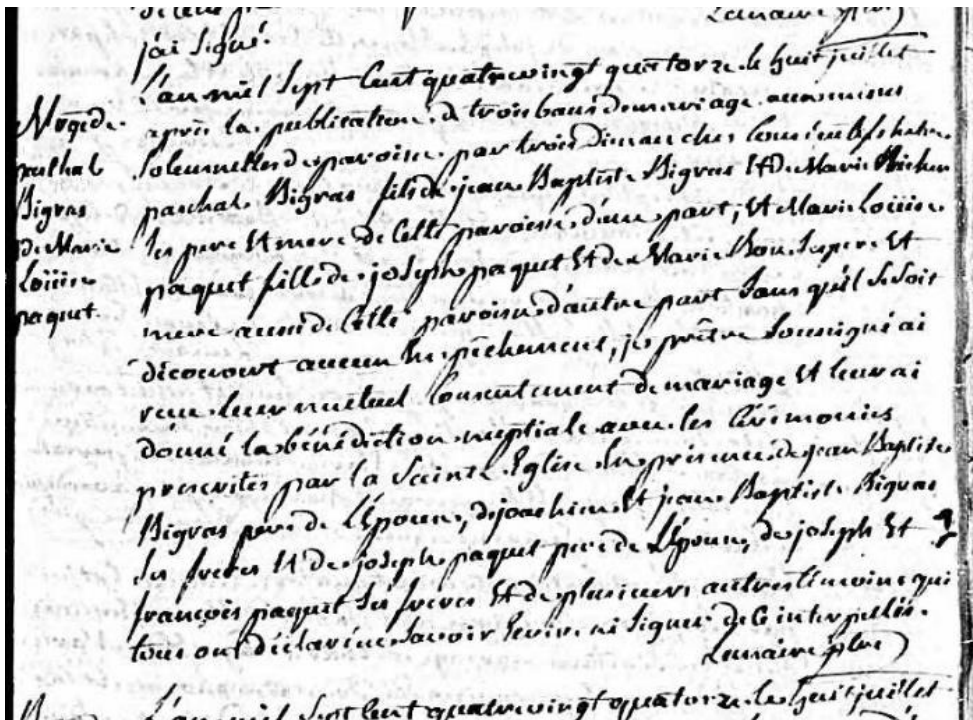 Lemaire ptre
j'ai signé.
L'an mil sept cent quatrevingt quatorze le huit juillet
après la publication de trois bans de mariage aux mines
solemnelles de paroisse par trois dimanches consécutifs entre
paschal Bigras fils de jean Baptiste Bigras et de Marie
ses pere et mere de cette paroisse d'une part, et Marie Loüise
paquet fille de joseph paquet et de Marie Bon ses pere et
mere aussi de cette paroisse d'autre part sans qu'il se soit
découvert aucun empêchement, je prêtre soussigné ai
reçu leur mutuel consentement de mariage et leur ai
donné la bénédiction nuptiale avec les cérémonies
prescrites par la Sainte Eglise en présence de jean Baptiste
Bigras pere de l'Epoux, de joachim et jean Baptiste Bigras
ses freres et de joseph paquet pere de l'Epouse, de joseph et
françois paquet ses freres et de plusieurs autres témoins qui
tous ont déclaré ne savoir écrire ni signer de ce interpellés.
Lemaire ptre
Mrge de
paschal
Bigras
De Marie
Loüise
paquet
L'an mil sept cent quatrevingt quatorze le huit juillet